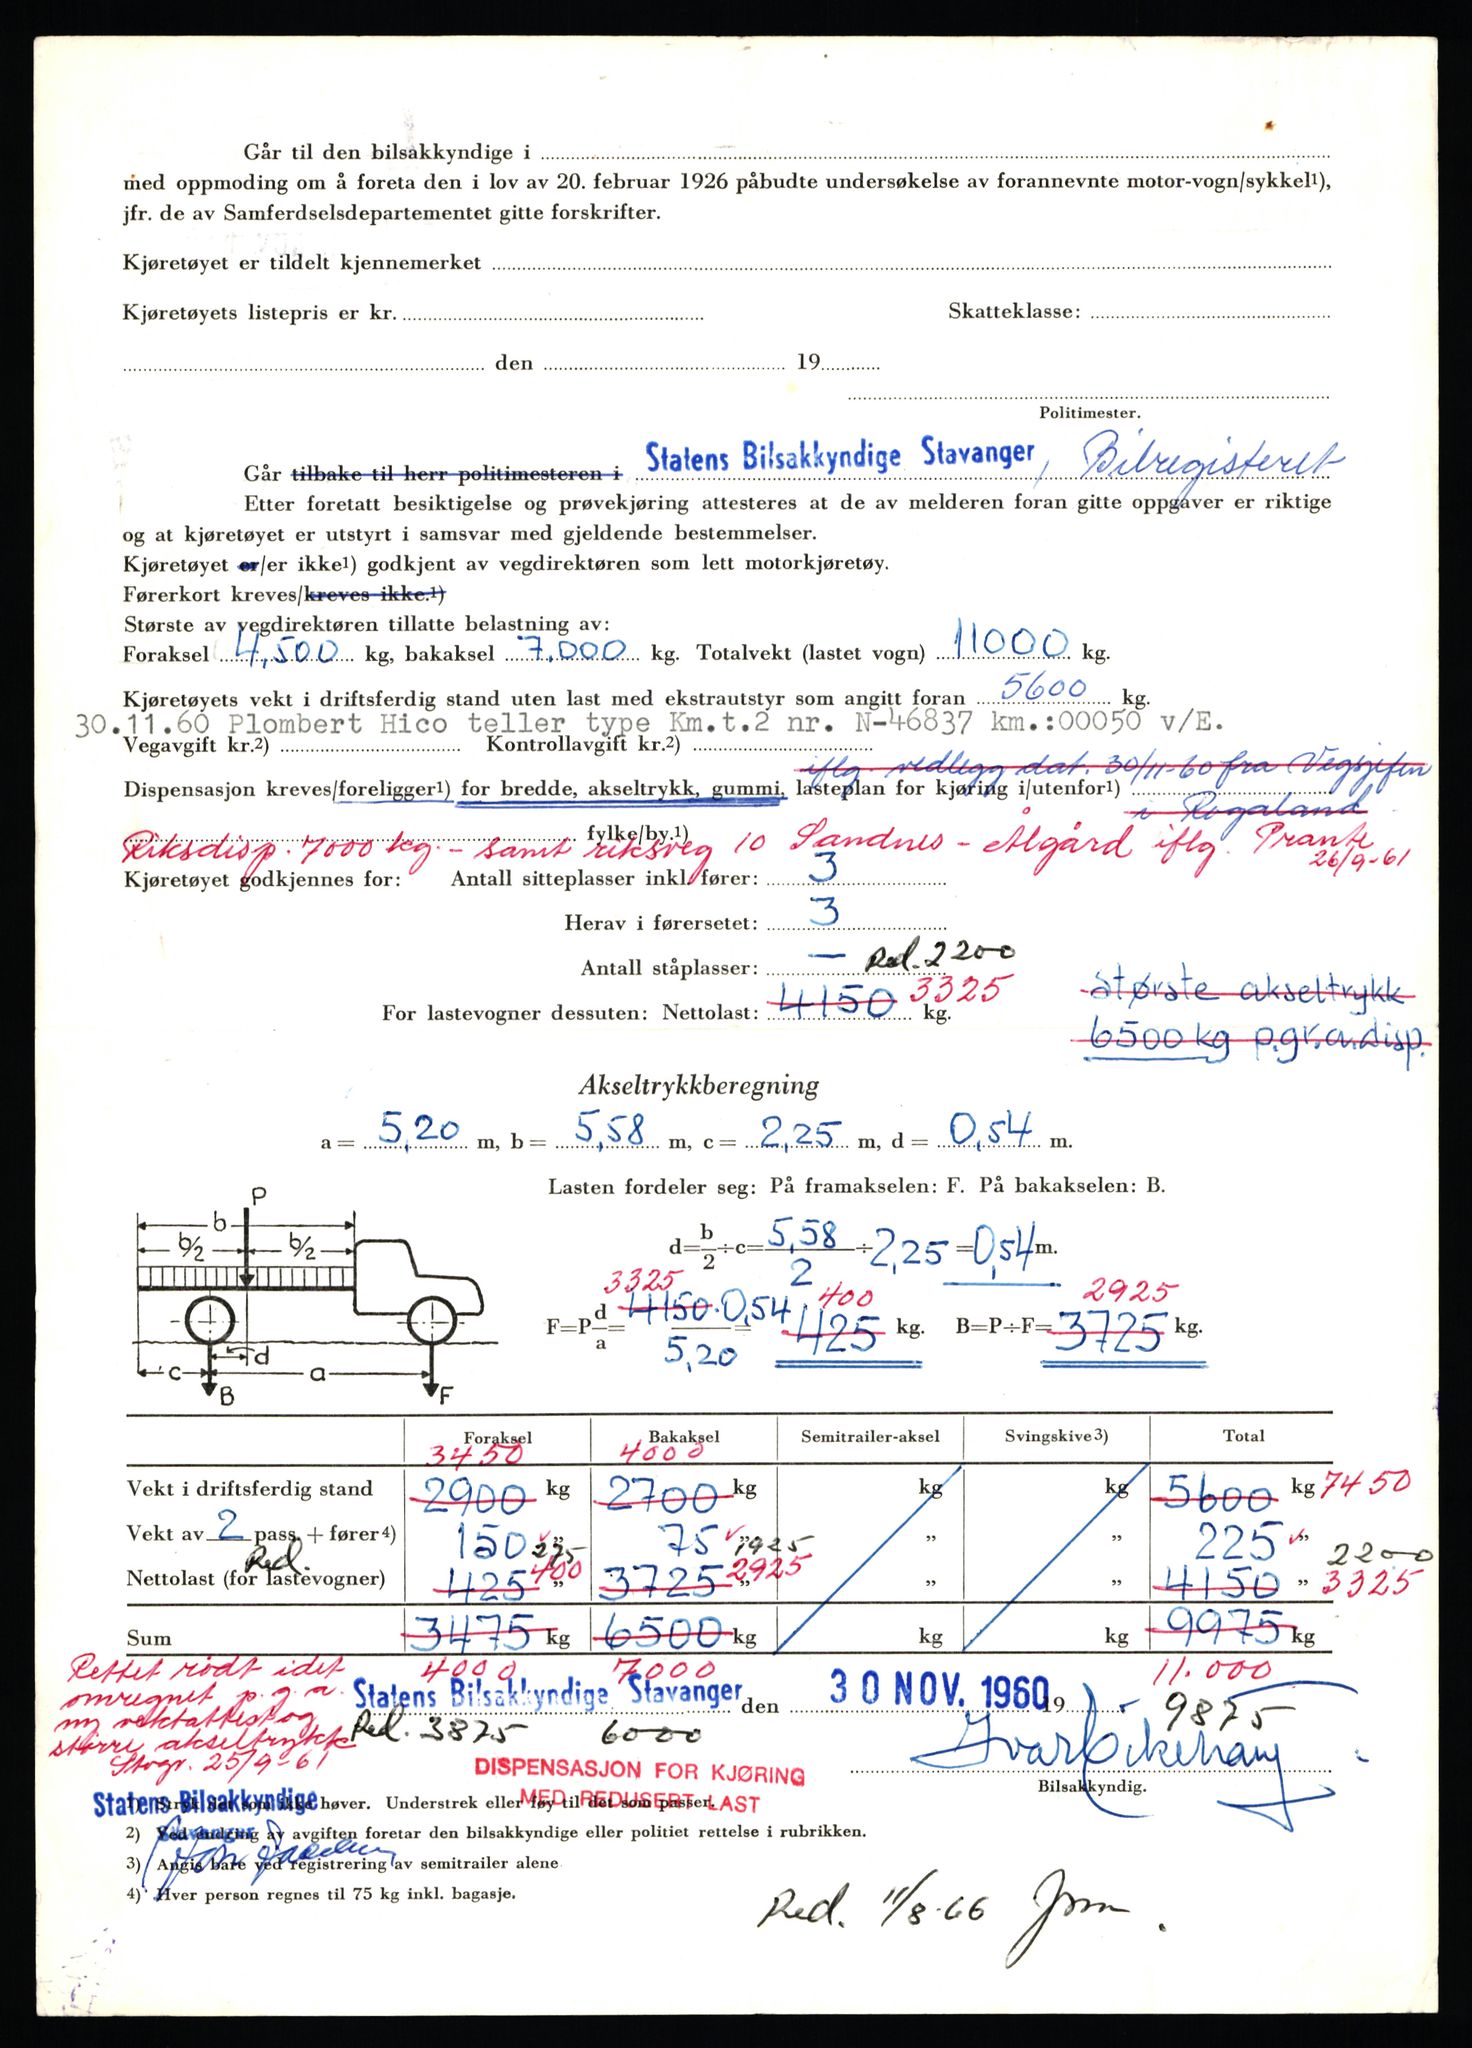 Går til den bilsakkyndige i
med oppmoding om å foreta den i lov av 20. februar 1926 påbudte undersøkelse av forannevnte motor-vogn/sykkel1),
jfr. de av Samferdselsdepartementet gitte forskrifter.
Kjøretøyet er tildelt kjennemerket
Kjøretøyets listepris er kr. Skatteklasse:
den 19
Politimester.
Går tilbake til herr politimesteren i Statens Bilsakkyndige Stavanger, Bilregisteret
Etter foretatt besiktigelse og prøvekjøring attesteres at de av melderen foran gitte oppgaver er riktige
og at kjøretøyet er utstyrt i samsvar med gjeldende bestemmelser.
Kjøretøyet er/er ikke1) godkjent av vegdirektøren som lett motorkjøretøy.
Førerkort kreves/kreves ikke.1)
Største av vegdirektøren tillatte belastning av:
Foraksel 4,500 kg, bakaksel 7.000 kg. Totalvekt (lastet vogn) 11000 kg.
Kjøretøyets vekt i driftsferdig stand uten last med ekstrautstyr som angitt foran 5600 kg.
30.11.60 Plombert Hico teller type Km.t.2 nr. N-46837 km.:00050 v/E.
Vegavgift kr.2) Kontrollavgift kr.2)
iflg. vedlegg dat. 30/11-60 fra Vegsjefen
Dispensasjon kreves/foreligger1) for bredde, akseltrykk, gummi, lasteplan for kjøring i/utenfor1)
i Rogaland
fylke/by.1)
Riksdisp. 7000 kg. – samt riksveg 10 Sandnes – Ålgård iflg.
26/9-61
Kjøretøyet godkjennes for: Antall sitteplasser inkl. fører: 3
Herav i førersetet: 3
Antall ståplasser: — Red. 2200
For lastevogner dessuten: Nettolast: 4150 3325 kg.
største akseltrykk
6500 kg p.gr.a.disp.
Akseltrykkberegning
a = 5,20 m, b = 5,58 m, c = 2,25 m, d = 0,54 m.
Lasten fordeler seg: På framakselen: F. På bakakselen: B.
P
b
b/2 b/2
c d a
B F
d=b/2÷c= 5,58/2 ÷ 2,25 = 0,54 m.
3325 400 2925
F=P d/a= 4150·0,54/5,20 = 425 kg. B=P÷F= 3725 kg.
Foraksel Bakaksel Semitrailer-aksel Svingskive3) Total
3450 4000
Vekt i driftsferdig stand 2900 kg 2700 kg kg kg 5600 kg 7450
Vekt av 2 pass. + fører4) 150 „ 75 „ „ „ 225 „
Red. 275 1925 2200
Nettolast (for lastevogner) 425 „ 400 3725 „ 2925 „ „ 4150 „ 3325
Sum 3475 kg 6500 kg kg kg 9975 kg
4000 7000 11.000
Rettet rødt idet
omregnet p.g.a.
ny vektattest og
større akseltrykk
Stvgr. 25/9-61
Statens Bilsakkyndige Stavanger den 30 NOV. 1960 19
Red. 3875 6000 9875
DISPENSASJON FOR KJØRING
MED REDUSERT LAST
Bilsakkyndig.
Statens Bilsakkyndige
Stavanger
1) Stryk det som ikke høver. Understrek eller føy til det som passer.
2) Ved endring av avgiften foretar den bilsakkyndige eller politiet rettelse i rubrikken.
3) Angis bare ved registrering av semitrailer alene
4) Hver person regnes til 75 kg inkl. bagasje.
Red. 11/8-66